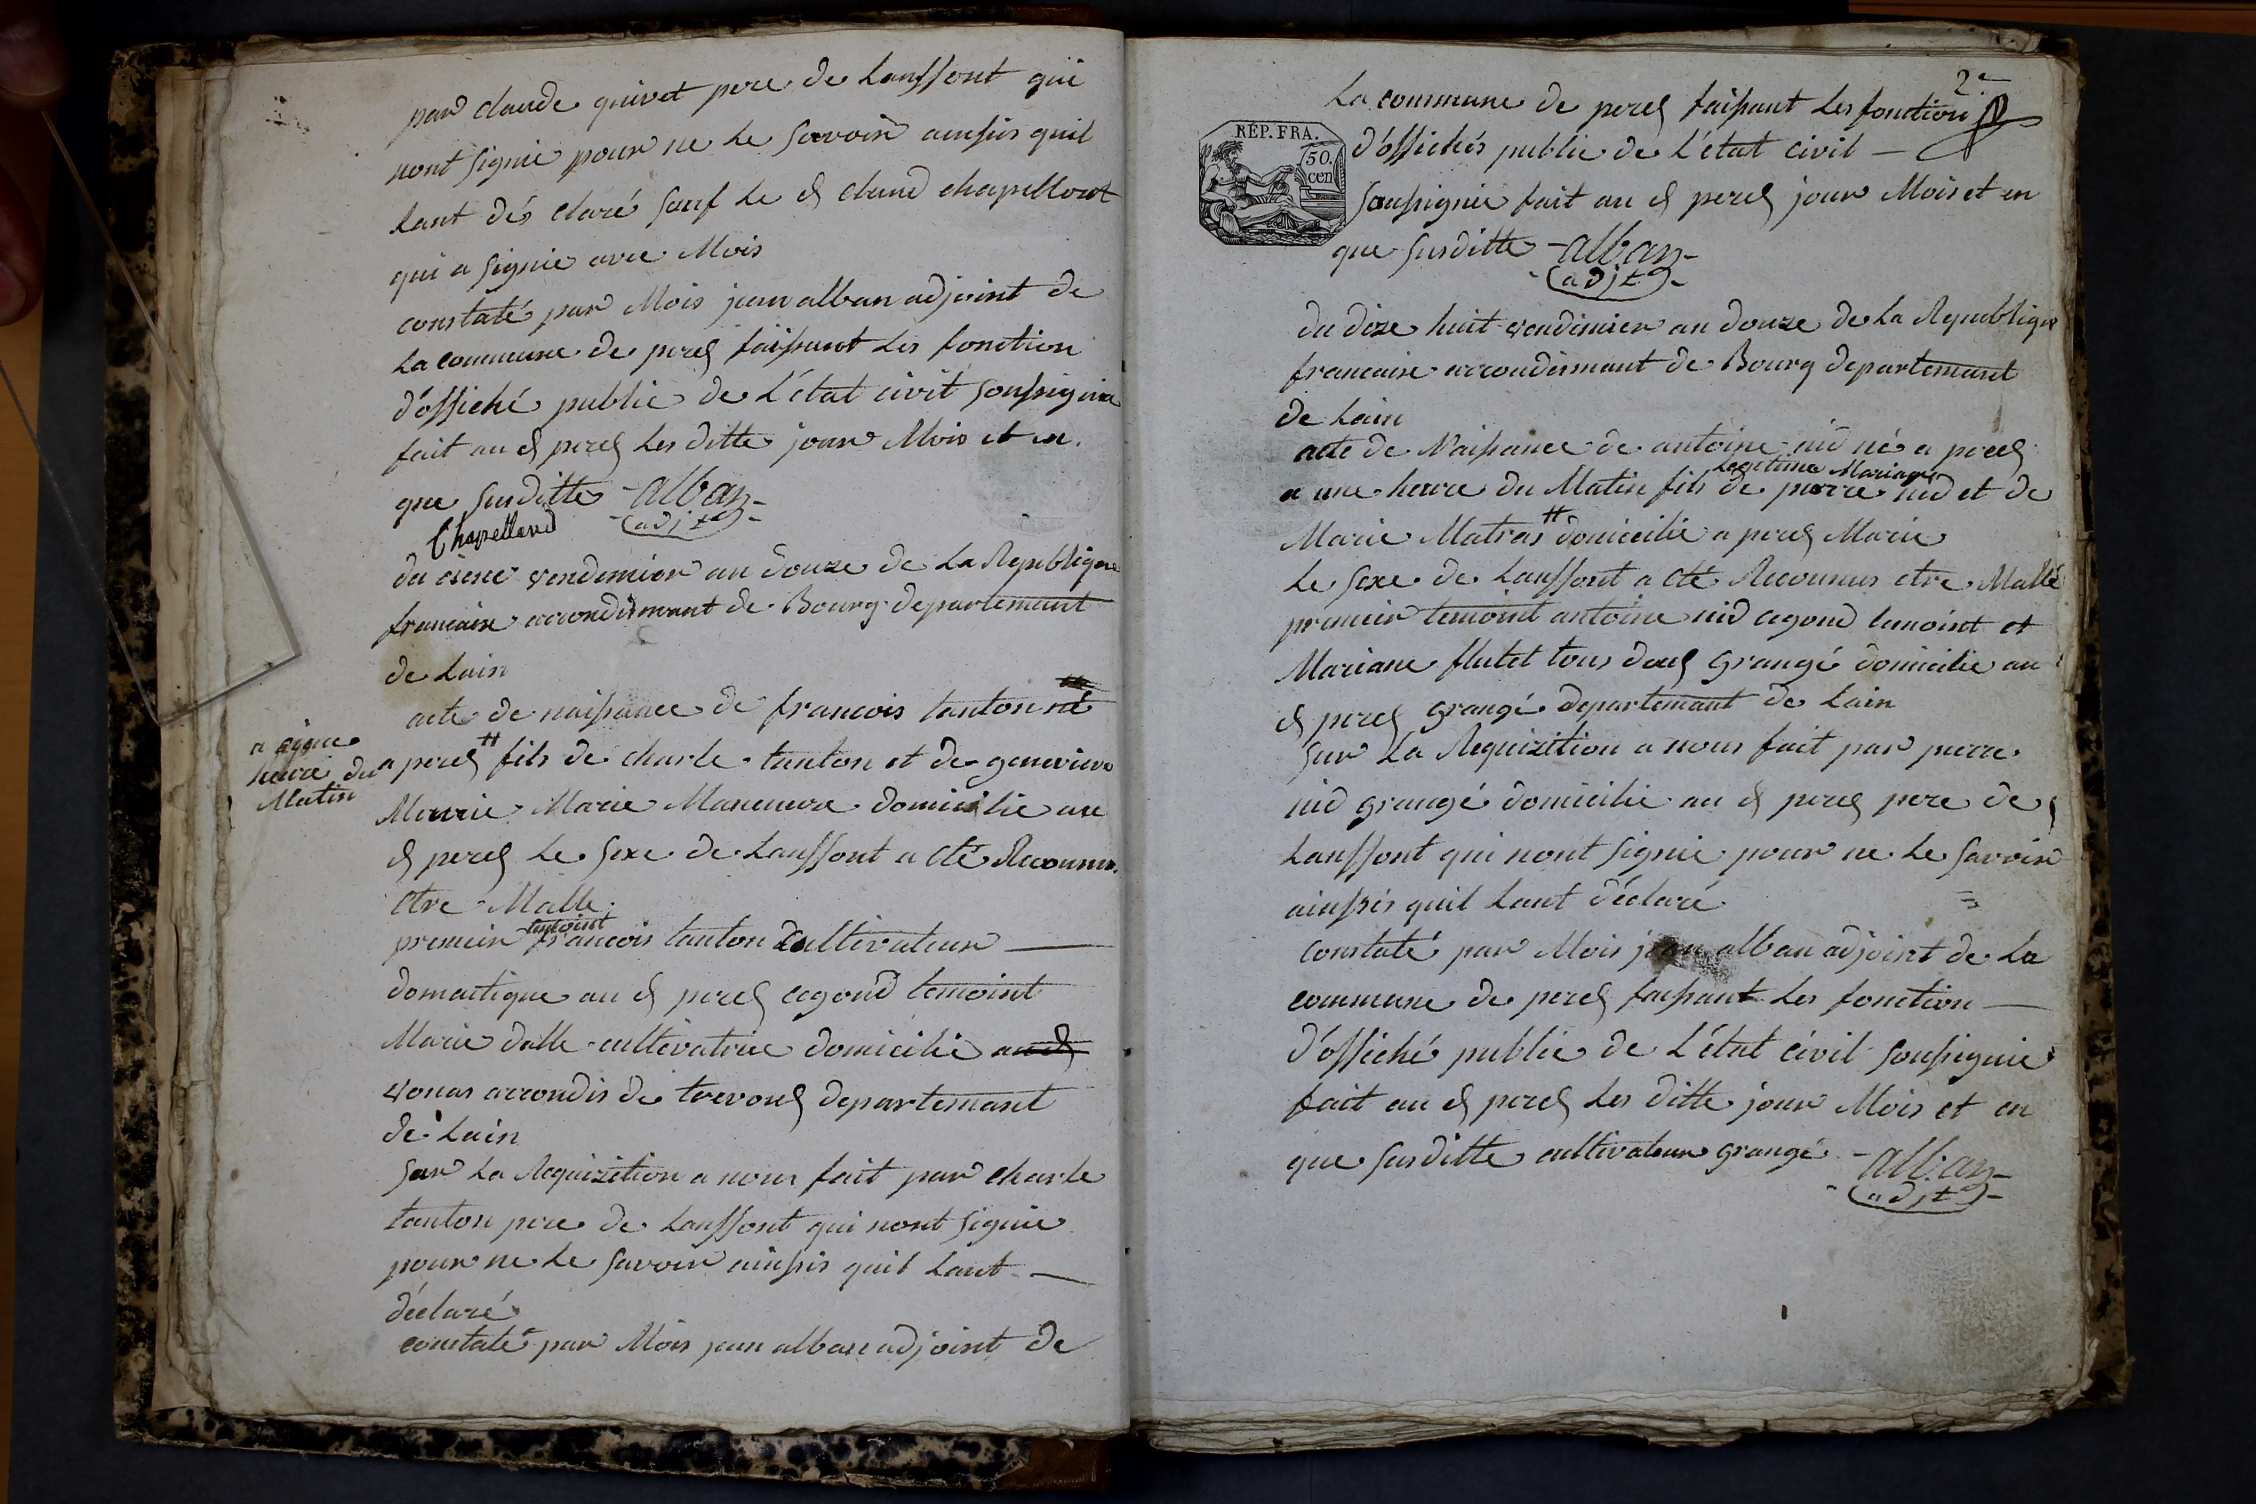 par claude quivet pere de Lanffont qui
nont signie pour ne Le savoir ainssis quil
Lant dés claré sauf Le d claud chapellont
qui a signie avec Mois
constaté par Mois jean alban adjoint de
La commune de perel faissant Les fonction
d'offiché public de L'état civil soussignie
fait au d perel Les ditte jour Mois et en
que susditte - alban -
(adjt)
Chapelland
du vendemier an douze de La Republique
francaise arrondismant de Bourg departemant
de Lain
acte de naissance de francois tanton né
a perel # fils de charle tanton et de genevieve
a heure du
Matin
Marie domicilie au
d perel Le sexe de Lanffont a été Reconnus
etre Malle
premier temoint francois tanton cultivateur
domestique au d perel cegond temoint
Marie dalle cultivatrice domicilié au d
vonas arrondis de trevoul departemant
de Lain
sur La Requizition a nous fait par charle
tanton pere de Lanffont qui nont signie
pour ne Le savoir ainssis quil Lant
déclaré
constaté par Mois jean alban adjoint de
2e
La commune de perel faissant Les fonction
REP. FRA.
50.
cen
d'offichés public de L'état civil
soussignie fait au d perel jour Mois et en
que susditte - alban -
(adjt)
du dixe huit vendimier an douze de La Republique
francaise arrondismant de Bourg departemant
de Lain
acte de Naissance de antoine nid né a perel
Legitime Mariage
a une heure du Matin fils de pierre nid et de
Marie Matras # domicilie a perel Marie
Le sexe de Lanffont a été Reconnus etre Malle
premier temoint antoine nid cegond temoint et
Mariane flutet tous deul grangé domicilie au
d perel grangé departemant de Lain
sur La Requizition a nous fait par pierre
nid grangé domicilie au d perel pere de
Lanffont qui nont signie pour ne Le savoir
ainssis quil Lant déclaré
constaté par Mois jean alban adjoint de La
commune de perel faissant Les fonction
d'offiché public de L'état civil soussignie
fait au d perel Les ditte jour Mois et en
que susditte cultivateur grangé - alban -
(adjt)